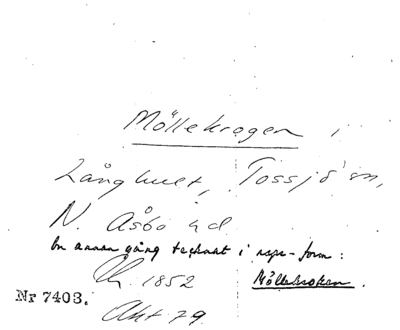 Möllekrogen i
Långhult, Tossjö sn,
N. Åsbo hd
En annan gång tecknat i rspr-form:
1852 Möllekroken.
Nr 7403.
Akt 79